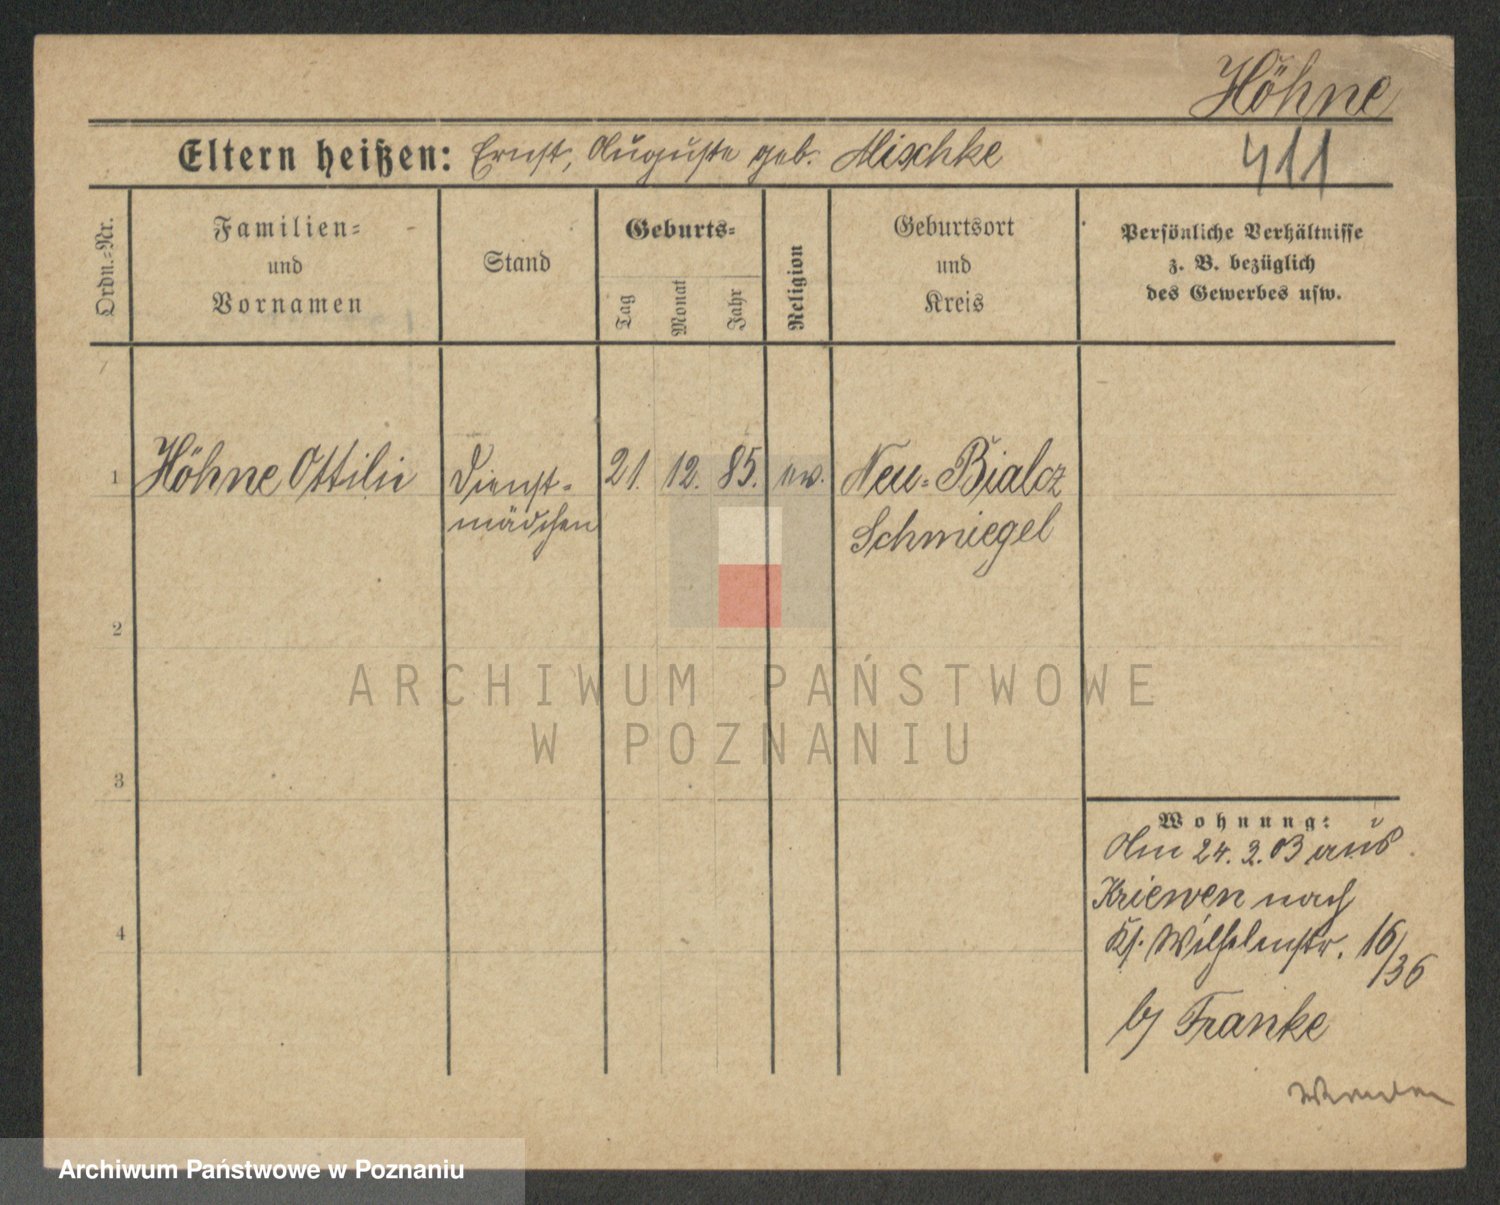 Höhne
411
Eltern heißen: Ernst, Auguste geb. Mischke
Ordn.=Nr.
Familien=
und
Vornamen
Stand
Geburts=
Tag
Monat
Jahr
Religion
Geburtsort
und
Kreis
Persönliche Verhältnisse
z. B. bezüglich
des Gewerbes usw.
1 Höhne Ottilie Dienst- 21. 12. 85. ev. Neu-Bialcz
mädchen Schmiegel
2
3
4
Wohnung:
Am 24. 3. 03 aus
Kriewen nach
Wilhelmstr. 16/36
Franke
Wenden
ARCHIWUM PAŃSTWOWE
W POZNANIU
Archiwum Państwowe w Poznaniu